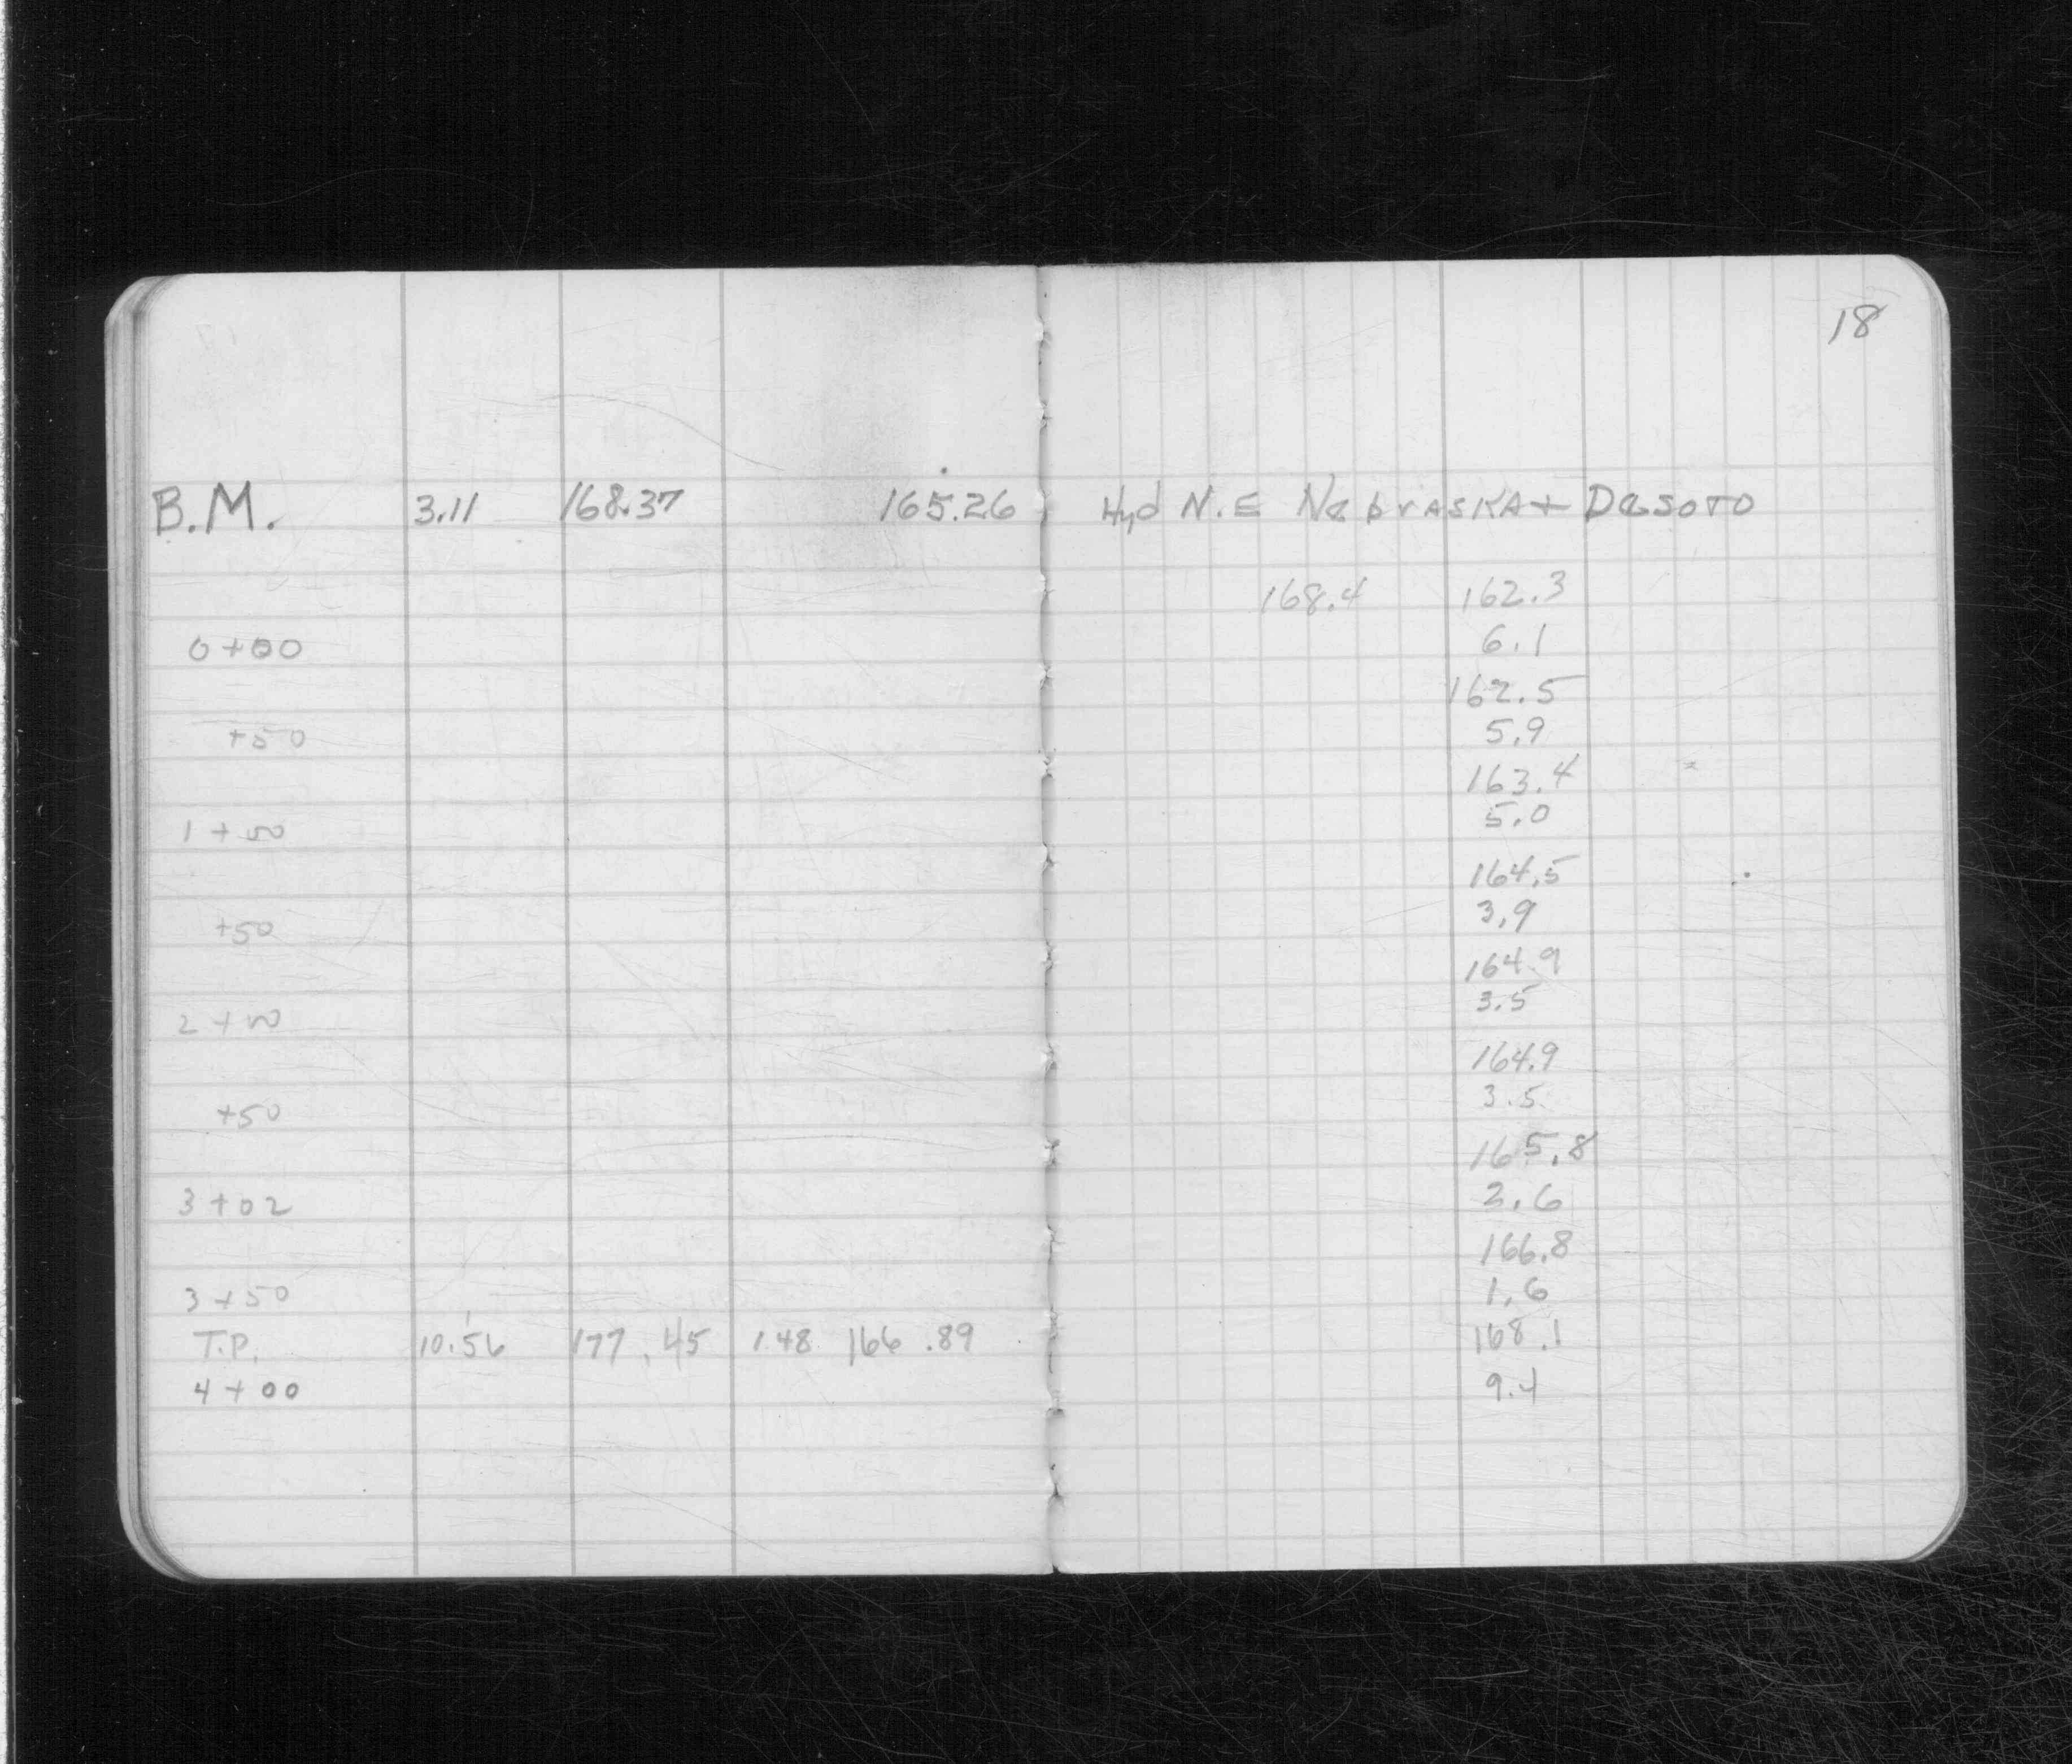 18
B.M. 3.11 168.37 165.26 Hyd N.E Nebraska + Desoto
168.4 162.3
0+00 6.1
162.5
+50 5.9
163.4
1+00 5.0
164.5
+50 3.9
164.9
2+00 3.5
164.9
+50 3.5
165.8
3+02 2.6
166.8
3+50 1.6
T.P. 10.56 177.45 1.48 166.89 168.1
4+00 9.4